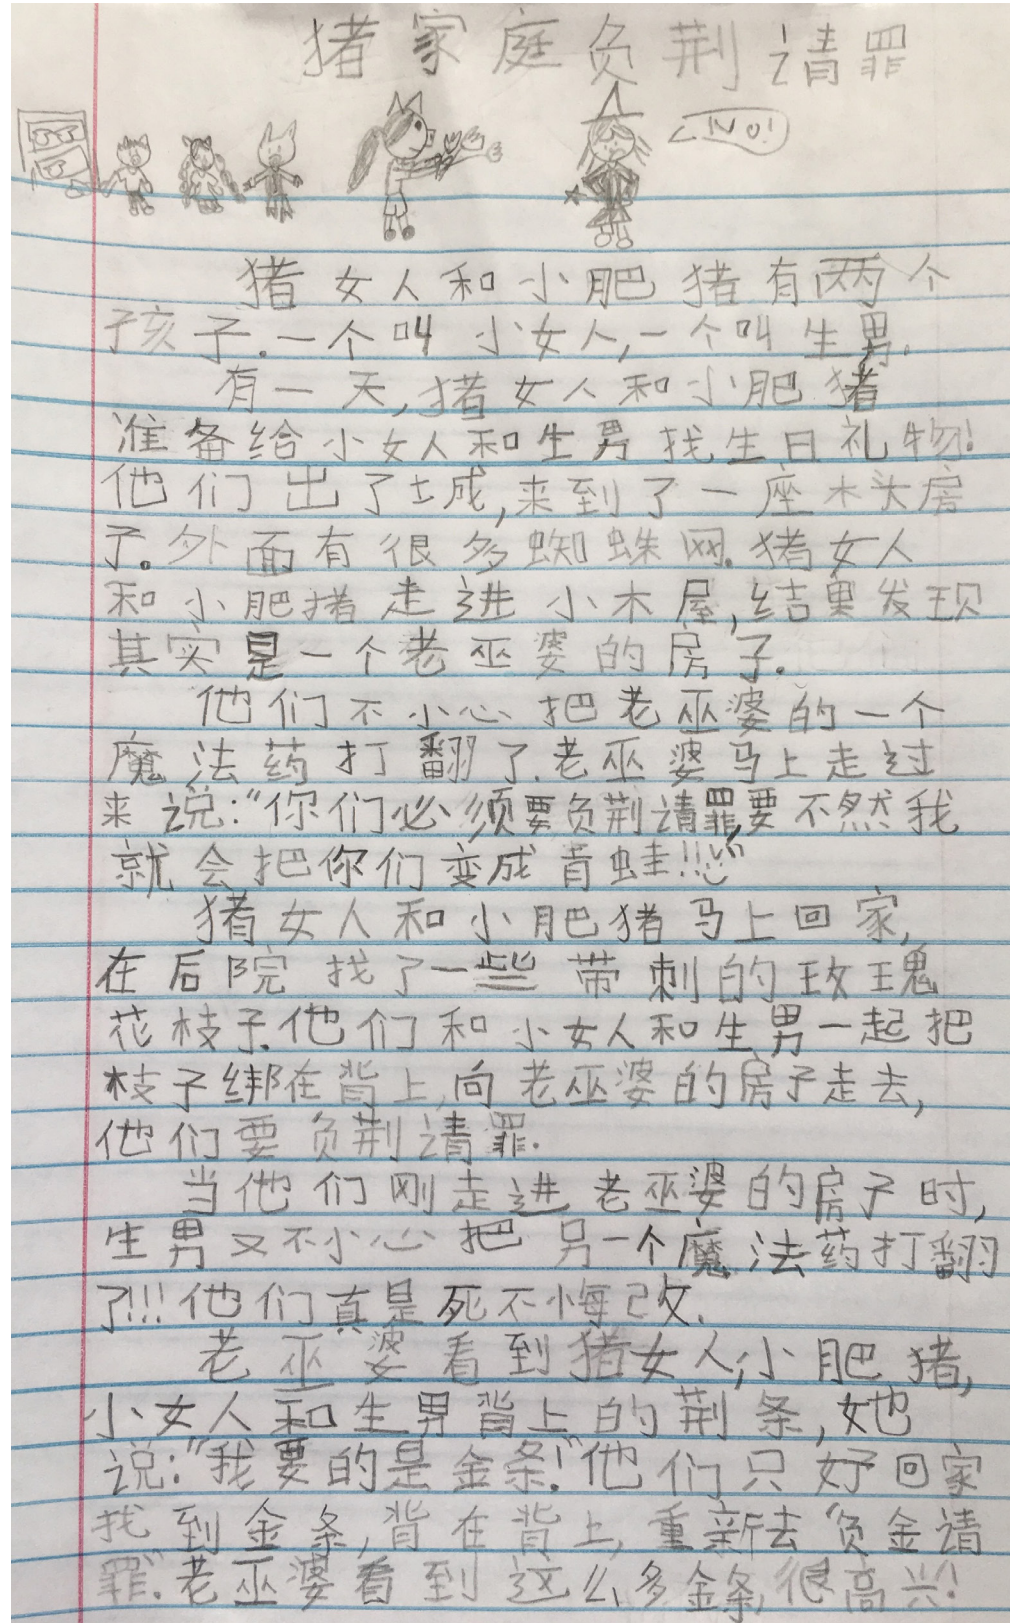 猪家庭负荆请罪
No!
猪女人和小肥猪有两个
孩子.一个叫小女人,一个叫生男.
有一天,猪女人和小肥猪
准备给小女人和生男找生日礼物!
他们出了城,来到了一座木头房
子。外面有很多蜘蛛网.猪女人
和小肥猪走进小木屋,结果发现
其实是一个老巫婆的房子.
他们不小心把老巫婆的一个
魔法药打翻了.老巫婆马上走过
来说:“你们必须要负荆请罪,要不然我
就会把你们变成青蛙!!”
猪女人和小肥猪马上回家,
在后院找了一些带刺的玫瑰
花枝子.他们和小女人和生男一起把
枝子绑在背上,向老巫婆的房子走去,
他们要负荆请罪.
当他们刚走进老巫婆的房子时,
生男又不小心把另一个魔法药打翻
了!!!他们真是死不悔改.
老巫婆看到猪女人,小肥猪,
小女人和生男背上的荆条,她
说:“我要的是金条!”他们只好回家
找到金条,背在背上,重新去“负金请
罪”.老巫婆看到这么多金条,很高兴!